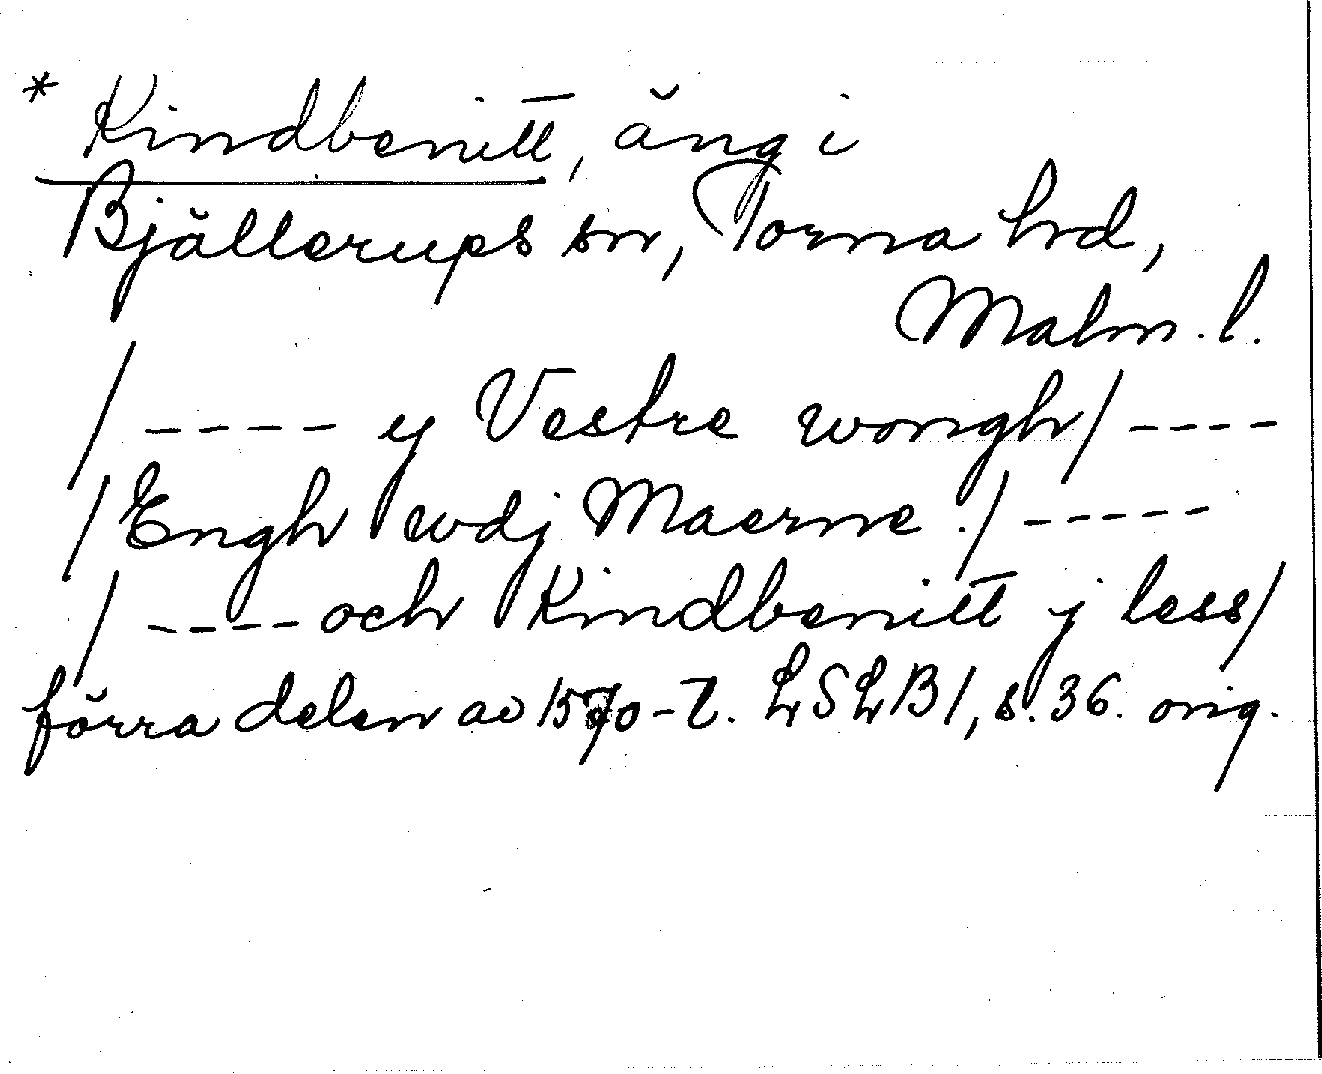 * Kindbenitt, äng i
Bjällerups sn, Torna hrd,
Malm. l.
/ ---- y Vestre wongh / ----
/ Engh wdj Maerne ./ -----
/ ---- och Kindbenitt j less /
förra delen av 1570-t. LSLB 1, s. 36. orig.